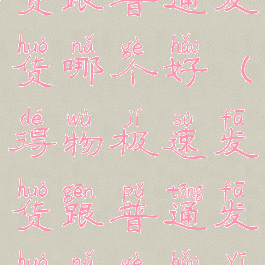 货跟普通发
huò nǎ gè hǎo
货哪个好（
dé wù jí sù fā
得物极速发
huò gēn pǔ tōng fā
货跟普通发
huò nǎ gè hǎo yī